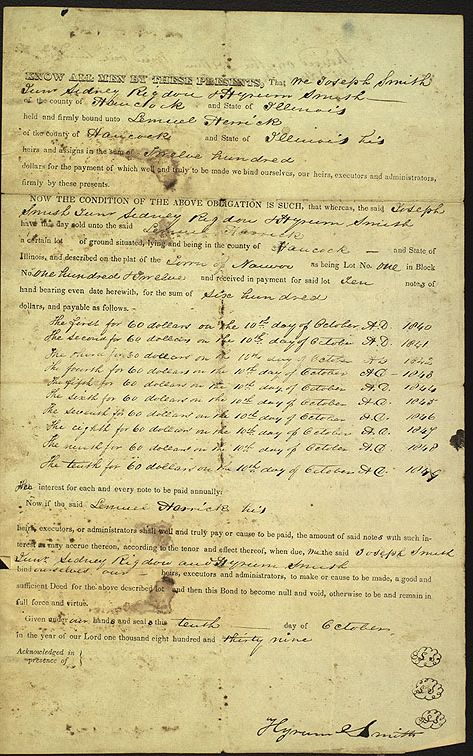 KNOW ALL MEN BY THESE PRESENTS, That We Joseph Smith
Junr Sidney Rigdon & Hyrum Smith
of the county of Hancock and State of Illinois
held and firmly bound unto Lemuel Herrick
of the county of Hancock and State of Illinois his
heirs and assigns in the sum of Twelve hundred
dollars for the payment of which well and truly to be made we bind ourselves, our heirs, executors and administrators,
firmly by these presents.
NOW THE CONDITION OF THE ABOVE OBLIGATION IS SUCH, that whereas, the said Joseph
Smith Junr Sidney Rigdon & Hyrum Smith
have this day sold unto the said Lemuel Herrick
a certain lot of ground situated, lying and being in the county of Hancock and State of
Illinois, and described on the plat of the Town of Nauvoo as being Lot No. one in Block
No. One hundred & twelve and received in payment for said lot Ten notes of
hand bearing even date herewith, for the sum of Six hundred
dollars, and payable as follows.
The first for 60 dollars on the 10th day of October A.D. 1840
The second for 60 dollars on the 10th day of October A.D. 1841
The third for 60 dollars on the 10th day of October A.D. 1842
The fourth for 60 dollars on the 10th day of October A.D. 1843
The fifth for 60 dollars on the 10th day of October A.D. 1844
The sixth for 60 dollars on the 10th day of October A.D. 1845
The seventh for 60 dollars on the 10th day of October A.D. 1846
The eighth for 60 dollars on the 10th day of October A.D. 1847
The ninth for 60 dollars on the 10th day of October A.D. 1848
The tenth for 60 dollars on the 10th day of October A.D. 1849
The interest for each and every note to be paid annually:
Now if the said Lemuel Herrick his
heirs, executors, or administrators shall well and truly pay or cause to be paid, the amount of said notes with such in-
terest as may accrue thereon, according to the tenor and effect thereof, when due, We the said Joseph Smith
Junr Sidney Rigdon and Hyrum Smith
bind ourselves our heirs, executors and administrators, to make or cause to be made, a good and
sufficient Deed for the above described lot and then this Bond to become null and void, otherwise to be and remain in
full force and virtue.
Given under our hands and seals this tenth day of October
in the year of our Lord one thousand eight hundred and thirty nine
Acknowledged in
presence of
Hyrum Smith